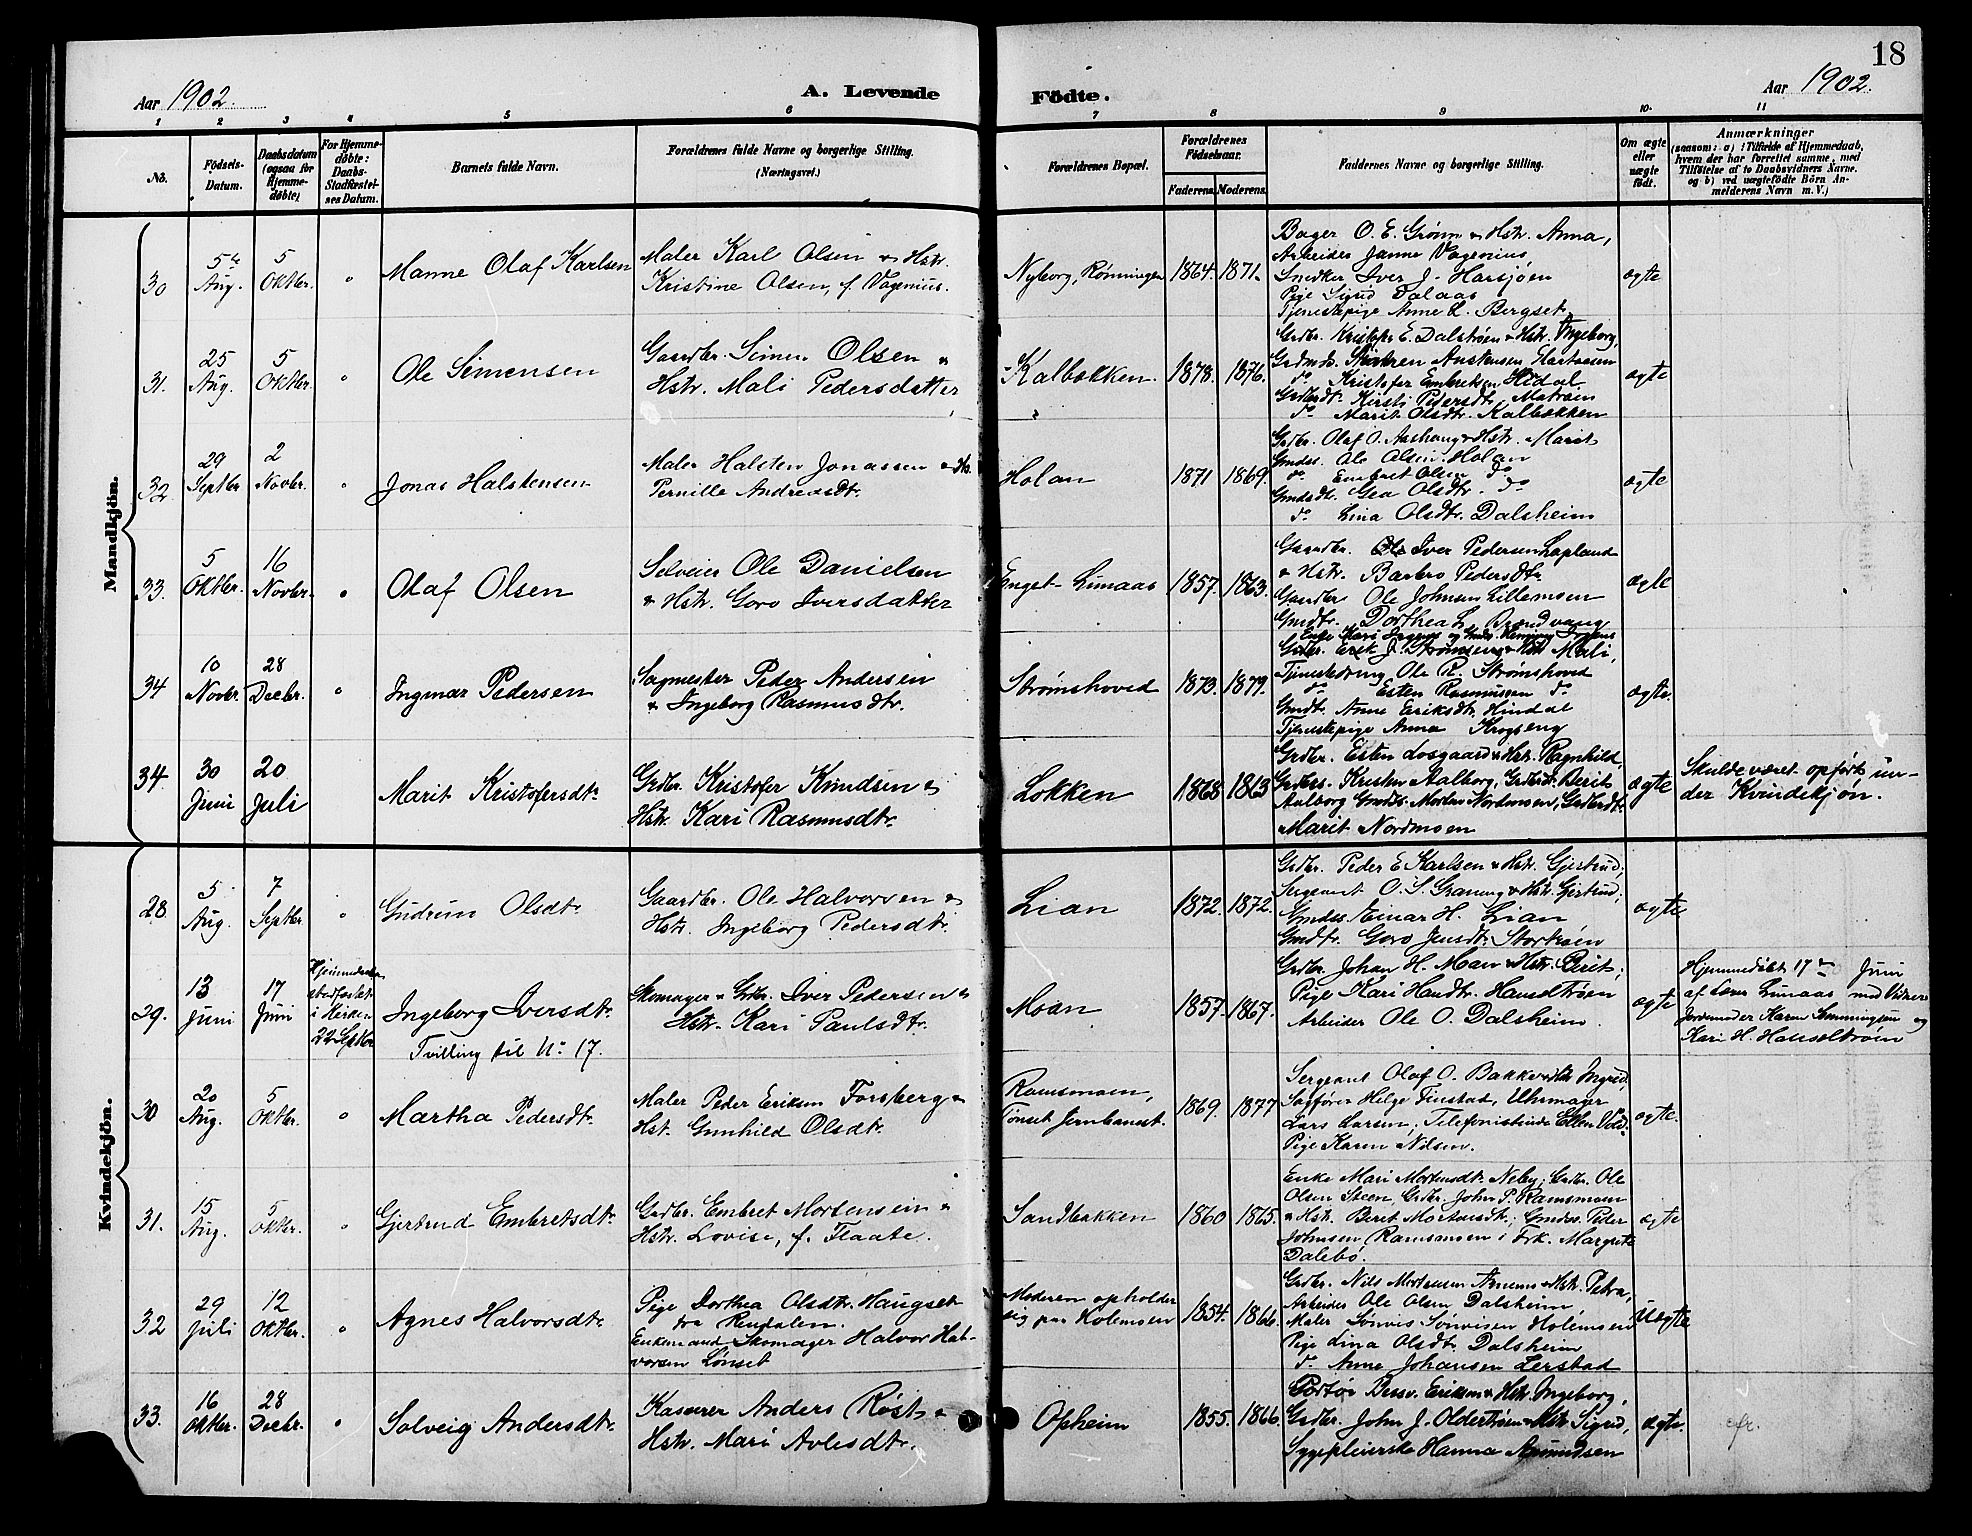 18
Aar 1902.
A. Levende
Födte.
Aar 1902.
1 2 3 4 5 6 7 8 9 10. 11
No.
Födsels-
Datum.
Daabsdatum
(ogsaa for
Hjemme-
döbte)
For Hjemme-
döbte:
Daabs-
Stadfæstel-
ses Datum.
Barnets fulde Navn.
Forældrenes fulde Navne og borgerlige Stilling.
(Næringsvei.)
Forældrenes Bopæl.
Forældrenes
Födselsaar.
Faderens. Moderens.
Faddernes Navne og borgerlige Stilling.
Om ægte
eller
uægte
födt.
Anmærkninger
(saasom: a) i Tilfælde af Hjemmedaab,
hvem der har forrettet samme, med
Tilföielse af to Daabsvidners Navne.
og b) ved uægtefödte Börn An-
melderens Navn m. V.)
Mandkjön.
30
5te
Aug.
5
Oktbr.
"
Manne Olaf Karlsen
Maler Karl Olsen & Hstr.
Kristine Olsen, f. Vagenius.
Nyborg, Rønningen
1864. 1871.
Bager O. E. Grønn & Hstr. Anna,
Arbeider Janne Vagenius,
Snedker Iver J. Harsjøen
Pige Sigrid Dalaas
Tjenestepige Anne L. Bergset
ægte
31.
25
Aug.
5
Oktbr.
"
Ole Simensen
Gaardbr. Simen Olsen &
Hstr. Mali Pedersdatter
Kalbækken.
1878. 1876.
Grdbr. Kristofer E. Dalstrøen & Hstr. Ingeborg,
Grdmds. Austensen
do Kristofer Embretsen Hidal
Grdbrdt. Kirsti Pedersdt. Motrøen
do Marit Olsdtr. Kalbækken
ægte
32.
29
Septbr
2
Novbr.
"
Jonas Halstensen
Maler Halsten Jonassen & Hs.
Pernille Andreasdt.
Holan
1871 1869.
Grdbr. Olaf O. Aashaug & Hstr. Marit
Gmds. Ole Olsen Holan
do Embret Olsen do
Gmdsdtr. Gea Olsdtr. do
do Lina Olsdtr. Dalsheim
ægte
33.
5
Oktbr.
16
Novbr.
"
Olaf Olsen
Selveier Ole Danielsen
& Hstr. Goro Iversdatter
Enget-Limaas
1857. 1863.
Gaardbr. Iver Pedersen Lapland
& Hstr. Barbro Pedersdtr
Gaardbr Ole Johnsen Lillemoen
Gmdtr. Dorthea L. Brændvang
Enke Kari
ægte
34
10
Novbr.
28
Decbr.
"
Ingmar Pedersen
Sagmester Peder Andersen
& Ingeborg Rasmusdtr.
Strømshoved
1873. 1879.
Grdbr. Erik J. Strømseng & Hstr Mali,
Tjenestedreng Ole R. Strømshoved
do Esten Rasmussen do
Gmdt. Anne Eriksdtr. Hindal
Tjenestepige Anna Krogseng
ægte.
34.
30
Juni
20
Juli
Marit Kristofersdt.
Grdbr. Kristofer Knudsen &
Hstr. Kari Rasmusdtr.
Løkken
1868 1863
Grdbr. Esten Losgaard & Hstr. Ragnhild,
Grdbrs. Kristen Aalborg, Grdbrdt. Berit
Aalborg Gmds. Morten Nordmoen, Grdbrdt.
Marit Nordmoen
ægte
Skulde været opført un-
der Kvindekjøn.
Kvindekjön.
28.
5
Aug.
7
Septbr.
"
Gudrun Olsdt.
Gaardbr. Ole Halvorsen &
Hstr. Ingeborg Pedersdt.
Lian
1872. 1872.
Grdbr. Peder E Karlsen & Hstr. Gjertrud;
Sergeant O. S. Graneng & Hstr. Gjertrud;
Gmds Einar H. Lian
Gmdtr. Goro Jensdt. Stortrøen
ægte
29.
13
Juni
17
Juni
Hjemmedaaben
stadfæstet
i Kirken
22 Septbr
Ingeborg Iversdt.
Tvilling til No 17.
Skomager & Grdbr. Iver Pedersen &
Hstr. Kari Paulsdtr.
Moan
1857. 1867.
Grdbr. Johan H. Moan & Hstr. Berit;
Pige Kari Hansdtr. Hanseltrøen
Arbeider Ole O. Dalsheim.
ægte
Hjemmedøbt 17de Juni
af Lærer Limaas med Vidner
Jordemoder Karen Simmingsen og
Kari H. Hanseltrøen
30
20
Aug.
5
Oktbr.
"
Martha Pedersdt.
Maler Peder Eriksen Forsberg &
Hst. Gunhild Olsdt.
Ramsmoen,
Tønset Jernbanest.
1869. 1877
Sergeant Olaf O. Bakke & Hstr Ingrid,
Sagfører Helge Finstad, Uhrmager
Lars Larsen, Telefonistinde Ellen Vold.
Pige Karen Nilsen.
ægte.
31.
15
Aug.
5
Oktbr.
"
Gjertrud Embretsdt.
Grdbr. Embret Mortensen &
Hstr. Lovise, f. Flaate.
Sandbakken
1860 1865.
Enke Mari Mortensdt. Neby; Grdbr. Ole
Olsen Steen, Grdbr. John P. Ramsmoen
& Hstr. Beret Mortensdtr.; Gmds. Peder
Johnsen Ramsmoen; Frk. Margrete
Dalebø.
ægte
32
29
Juli
12
Oktbr.
"
Agnes Halvorsdt.
Pige Dorthea Olsdtr. Haugset
fra Rendalen.
Enkemand Skomager Halvor Hal-
vorsen Lønset
Moderen opholder
sig paa Holemoen
1854. 1866.
Grdbr. Nils Mortensen Arnemo & Hstr. Petra,
Arbeider Ole Olsen Dalsheim,
Maler Holemoen
Pige Lina Olsdt. Dalsheim
do Anne Johansen Lerstad
Uægte
33.
16
Oktbr.
28
Decbr.
"
Solveig Andersdt.
Kasserer Anders Røst &
Hstr. Mari Avlesdtr.
Opheim
1855. 1866.
Portør Eriksen & Hstr. Ingeborg,
Grdbr. John J. Oldertrøen & Hstr. Sigrid,
Sygepleierske Hanna Asmundsen
ægte.
cfr.